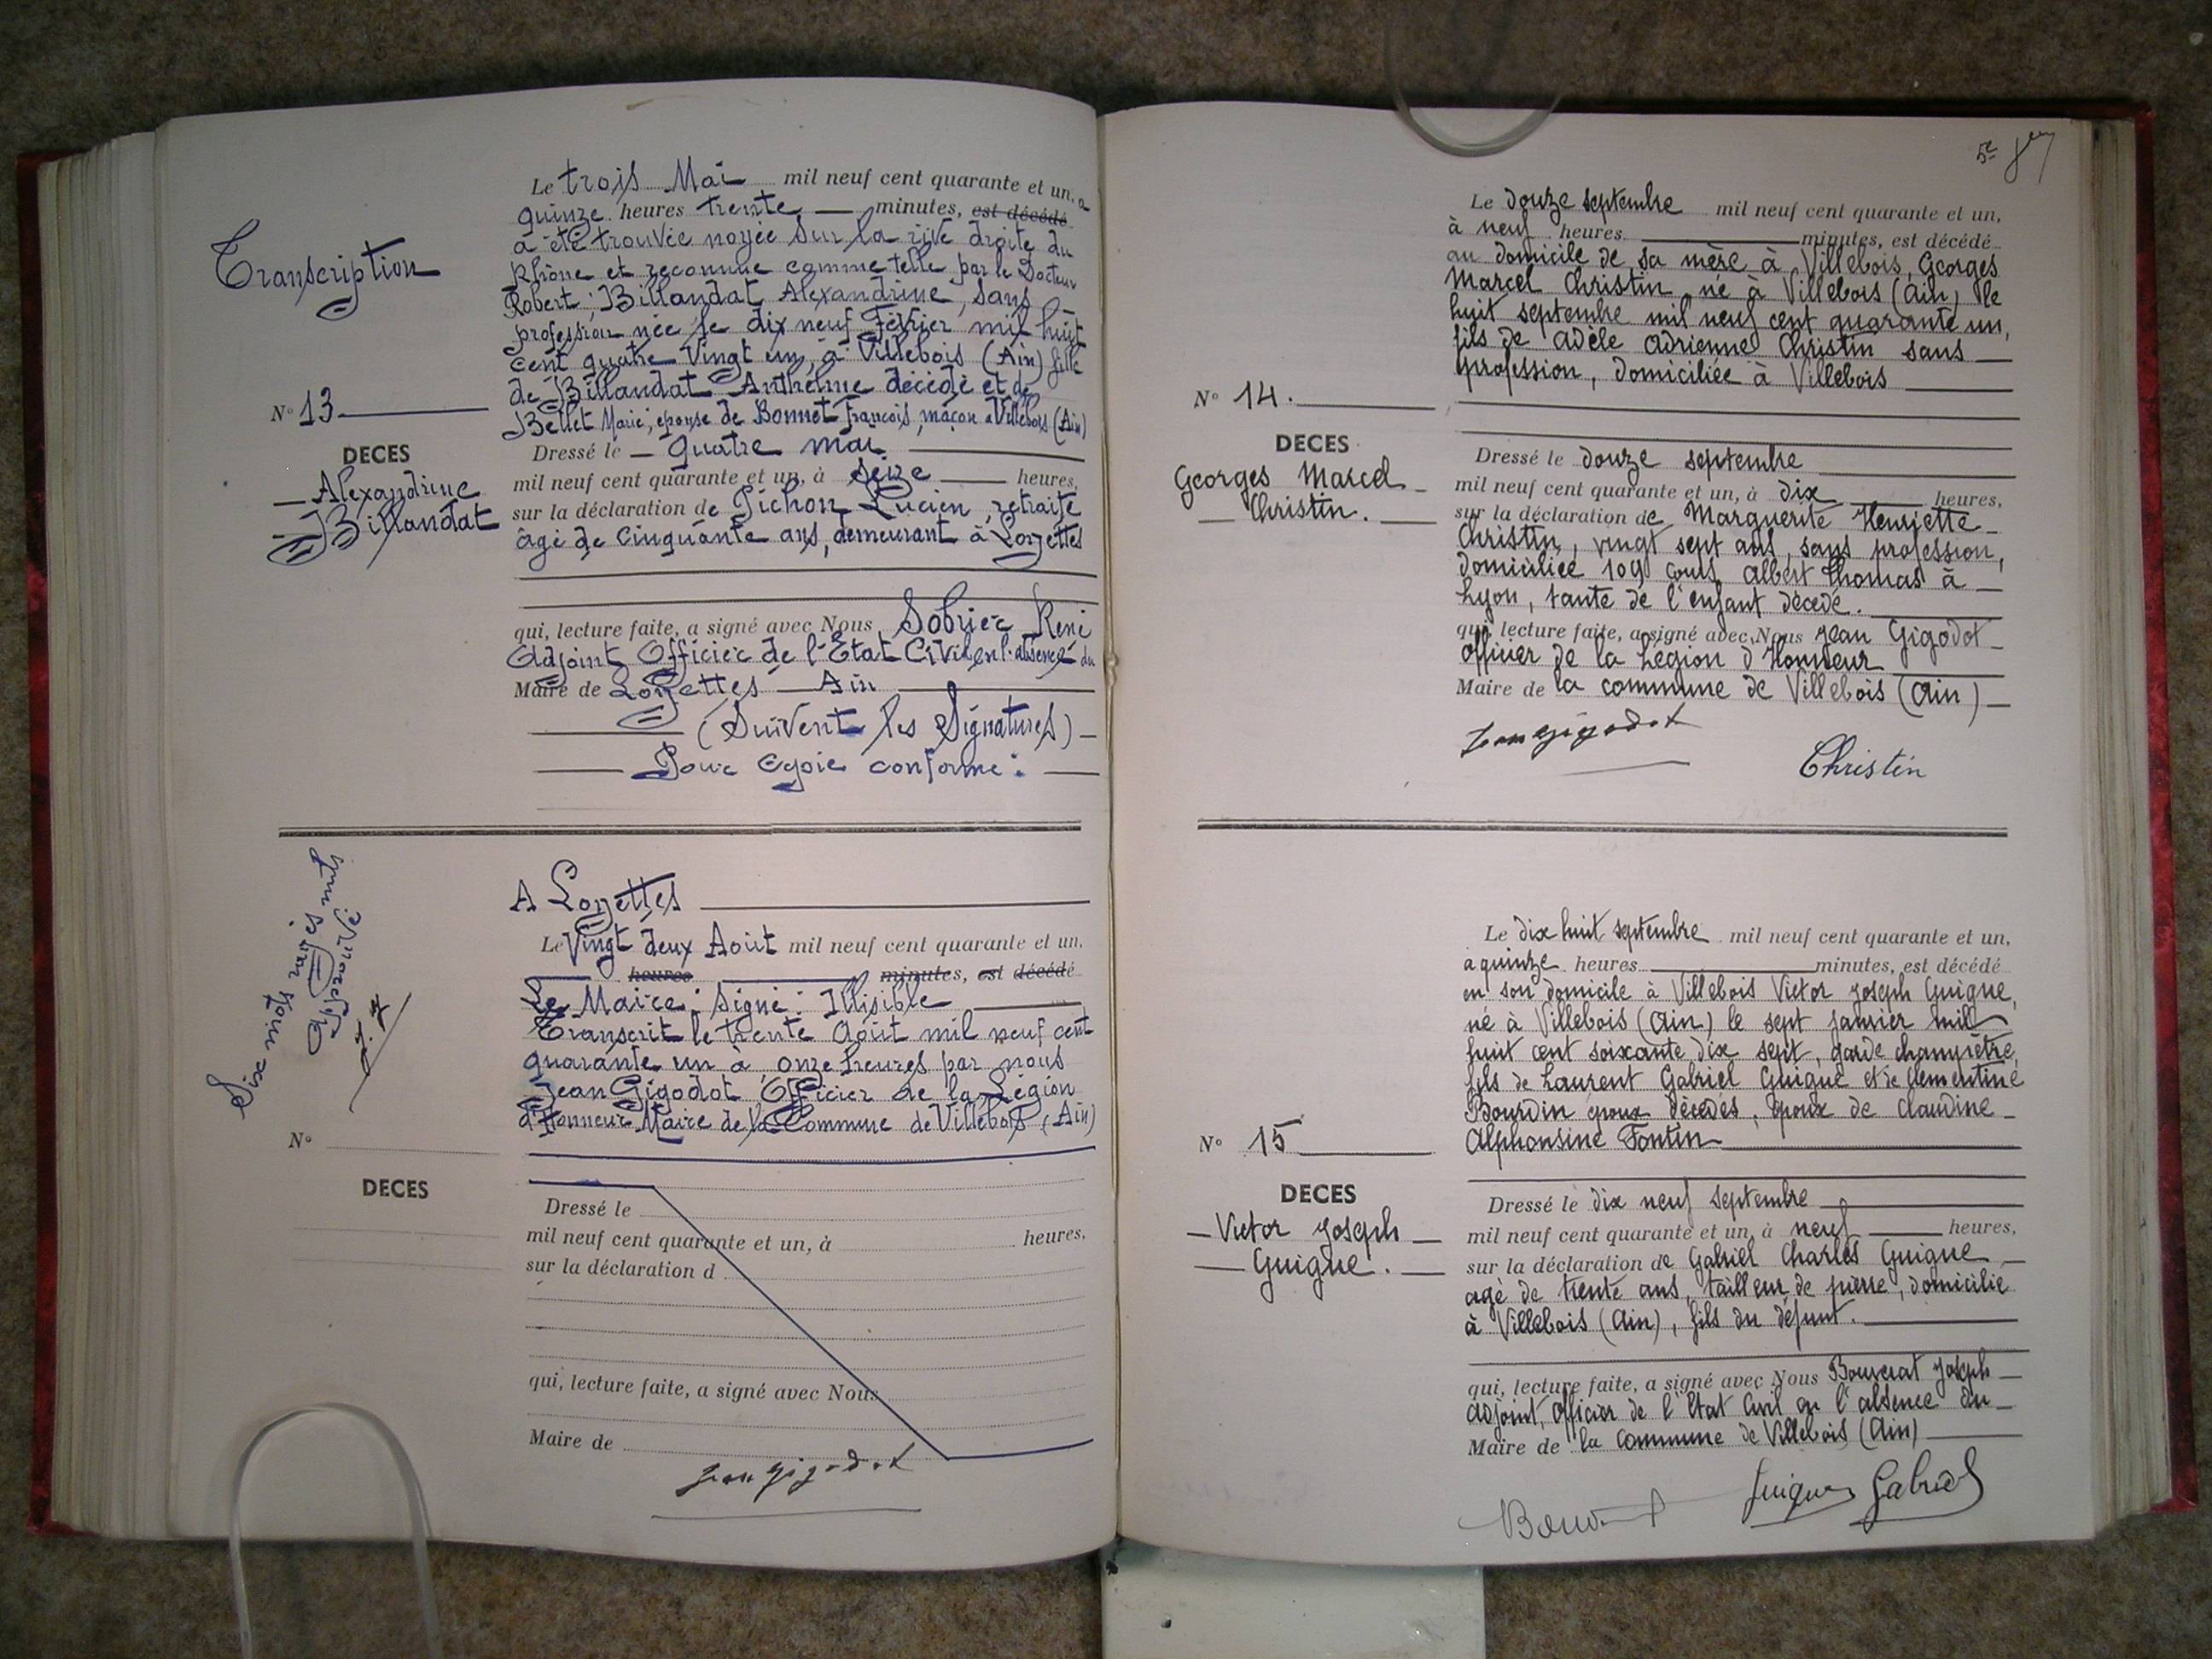 Transcription
N° 13
DECES
Alexandrine
Billandat
Le trois Mai mil neuf cent quarante et un, a
quinze heures trente minutes, est décédé
a été trouvée noyée sur la rive droite du
Rhône et reconnue comme telle par le Docteur
Robert, Billandat Alexandrine, sans
profession née le dix neuf Février mil huit
cent quatre Vingt un, à Villebois (Ain) fille
de Billandat Anthelme décédé et de
Bellet Marie, epouse de Bonnet François, maçon a Villebois (Ain)
Dressé le quatre mai
mil neuf cent quarante et un, à seize heures,
sur la déclaration de Pichon Lucien, retraité
âgé de Cinquante ans, demeurant à Loyettes
qui, lecture faite, a signé avec Nous Sobrier René
Adjoint Officier de l'Etat Civil en l'absence du
Maire de Loyettes Ain
(Suivent les Signatures)
Pour Copie conforme :
Six mots rayés nuls
Approuvé
J. G
N°
DECES
A Loyettes
Le Vingt deux Août mil neuf cent quarante et un,
heures minutes, est décédé
Le Maire : Signé : Illisible
Transcrit le trente Août mil neuf cent
quarante un à onze heures par nous
Jean Gigodot Officier de la Légion
d'Honneur Maire de la Commune de Villebois (Ain)
Dressé le
mil neuf cent quarante et un, à heures,
sur la déclaration d
qui, lecture faite, a signé avec Nous
Maire de
Jean Gigodot
5e
N° 14.
DECES
Georges Marcel
Christin.
Le douze septembre mil neuf cent quarante et un,
à neuf heures minutes, est décédé
au domicile de sa mère à Villebois, Georges
Marcel Christin né à Villebois (Ain) le
huit septembre mil neuf cent quarante un,
fils de Adèle Adrienne Christin sans
profession, domiciliée à Villebois
Dressé le douze septembre
mil neuf cent quarante et un, à dix heures,
sur la déclaration de Marguerite Henriette
Christin, vingt sept ans, sans profession,
domiciliée 109 cours Albert Thomas à
Lyon, tante de l'enfant décédé.
qui, lecture faite, a signé avec Nous Jean Gigodot
Officier de la Légion d'Honneur
Maire de la commune de Villebois (Ain)
Jean Gigodot
Christin
N° 15
DECES
Victor Joseph
Guigue.
Le dix huit septembre mil neuf cent quarante et un,
a quinze heures minutes, est décédé
en son domicile à Villebois Victor Joseph Guigue,
né à Villebois (Ain) le sept janvier mil
huit cent soixante dix sept, garde champêtre,
fils de Laurent Gabriel Guigue et de Clementine
Bourdin époux décédés, époux de Claudine
Alphonsine Fontin
Dressé le dix neuf septembre
mil neuf cent quarante et un, à neuf heures,
sur la déclaration de Gabriel Charles Guigue
agé de trente ans, tailleur de pierre, domicilié
à Villebois (Ain), fils du défunt.
qui, lecture faite, a signé avec Nous Bouvrat Joseph
Adjoint, Officier de l'Etat Civil en l'absence du
Maire de la commune de Villebois (Ain)
Guigue Gabriel